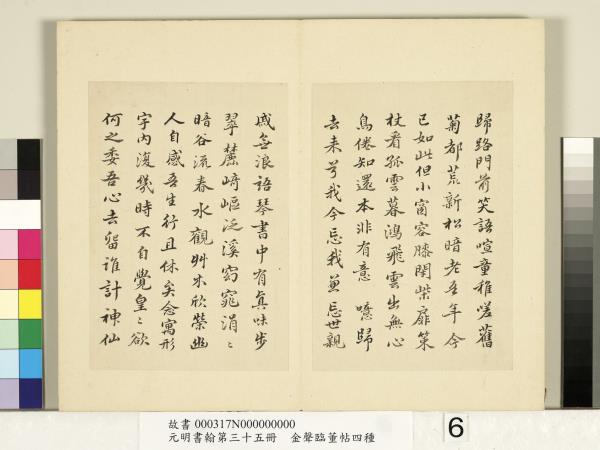 歸路門前笑語喧童稚嗟舊
菊都荒新松暗老吾年今
已如此但小窗容膝閉柴扉策
杖看孤雲暮鴻飛雲出無心
鳥倦知還本非有意 噫歸
去来兮我今忘我兼忘世親
戚無浪語琴書中有真味步
翠麓崎嶇泛溪窈窕涓〻
暗谷流春水觀艸木欣榮幽
人自感吾生行且休矣念寓形
宇內復幾時不自覺皇〻欲
何之委吾心去留誰計神仙
故書 000317N000000000
元明書翰第三十五冊　金聲臨董帖四種
6